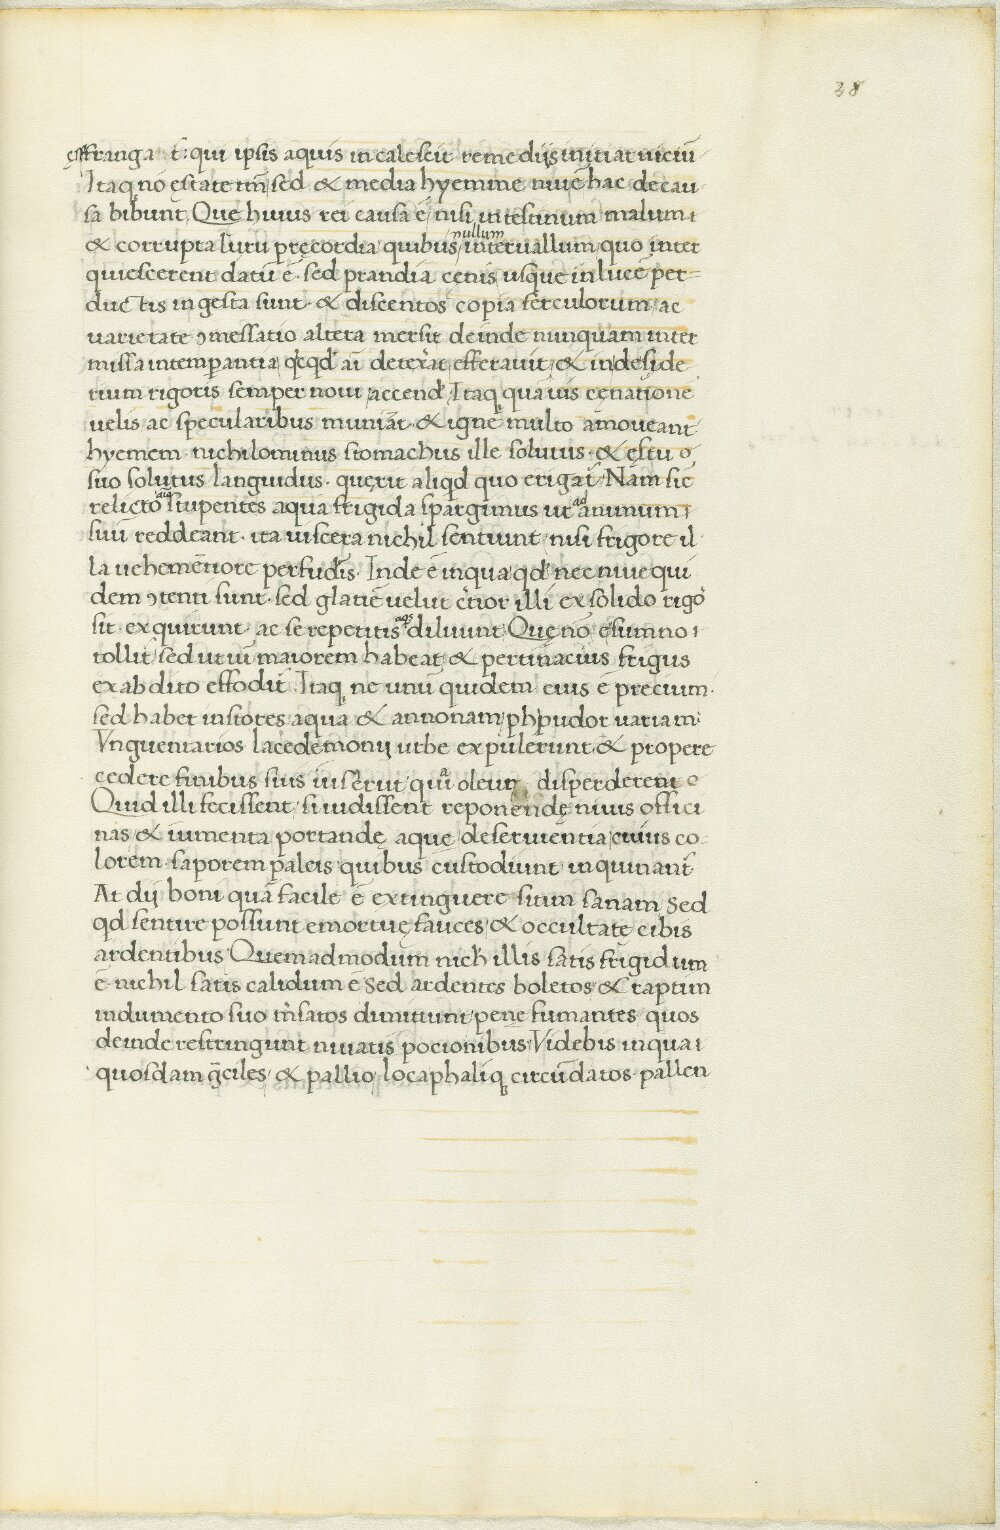 38
effranga t: qui ipsis aquis incalescit remediis initiat viciū
Itaq; nō ęstate tm̄ sed & media hyemme nivē hac de cau
sa bibunt. Que huius rei causa ē nisi intestinum malum
& corrupta luxu pręcordia quibus nullum intervallum quo inter
quiescerent datū ē. sed prandia cenis usque in lucē per=
ductis ingesta sunt. & discentos copia ferculorum ac
varietate ɔmessatio altera mersit deinde nunquam inter
missa intemperantia qcqd añ dexerat efferavit & in deside
rium rigoris semper novi accendᵗ Itaq; quāvis cęnatione
velis ac specularibus muniāt. & igne multo amoveant
hyemem. nichilominus stomachus ille solutus & ęstu
suo solutus languidus. querit aliqd quo erigat̄. Nam sic
relicto aīo stupentes aqua frigida spargimus ut ad animum
suū reddeant. ita viscera nichil sentiunt nisi frigore il
la vehementiore perfudis. Inde ē inqua qd nec nive qui
dem ɔtenti sunt. sed glatiē velut c̄tior illi ex solido rigo
sit exquirunt ac se repetitis aqs diluunt Que nō e sum̄no
tollit̄ sed ut vim maiorem habeat & pertinacius frigus
ex abdito effodit̄. Itaq; ne unū quidem eius ē precium.
sed habet insiores aqua & annonam ph pudor variam:
Unguentarios lacedemonii urbe expulerunt & propere
cedere finibus suis iusserūt quia oleum disperderent
Quid illi fecissent, si vidissent reponendę nivis offici
nas & iumenta portandę aque deservientia cuius co-
lorem saporem paleis quibus custodiunt inquinant̄
At dij boni quā facile ē extinguere sitim sanam Sed
qd sentire possunt emortuę fauces & occultatę cibis
ardentibus Quemadmodum nichᵗ illis satis frigidum
ē nichil satis calidum ē Sed ardentes boletos & raptim
indumento suo m̄satos dimitunt pene fumantes quos
deinde restringunt nivatis pocionibus Videbis inquam
quosdam gͥciles & pallio locaphaliq; circūdatos pallen